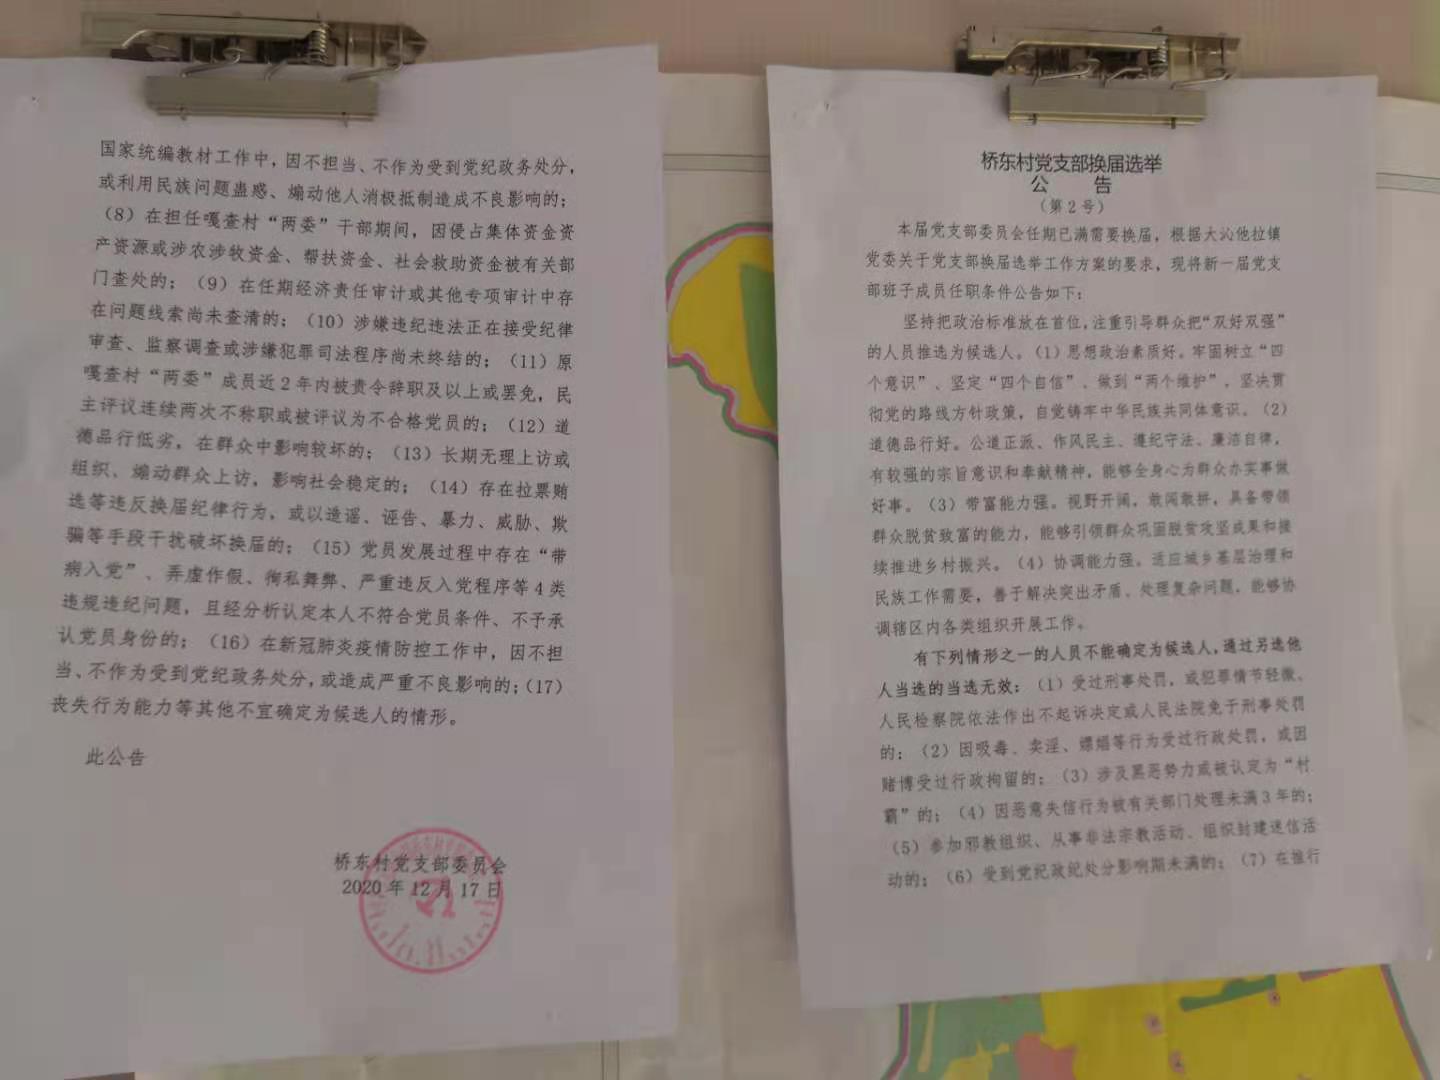 桥东村党支部换届选举
公 告
（第2号）
本届党支部委员会任期已满需要换届，根据大沁他拉镇
党委关于党支部换届选举工作方案的要求，现将新一届党支
部班子成员任职条件公告如下：
坚持把政治标准放在首位，注重引导群众把“双好双强”
的人员推选为候选人。（1）思想政治素质好。牢固树立“四
个意识”、坚定“四个自信”、做到“两个维护”，坚决贯
彻党的路线方针政策，自觉铸牢中华民族共同体意识。（2）
道德品行好。公道正派、作风民主、遵纪守法、廉洁自律，
有较强的宗旨意识和奉献精神，能够全身心为群众办实事做
好事。（3）带富能力强。视野开阔，敢闯敢拼，具备带领
群众脱贫致富的能力，能够引领群众巩固脱贫攻坚成果和接
续推进乡村振兴。（4）协调能力强。适应城乡基层治理和
民族工作需要，善于解决突出矛盾、处理复杂问题，能够协
调辖区内各类组织开展工作。
有下列情形之一的人员不能确定为候选人，通过另选他
人当选的当选无效：（1）受过刑事处罚，或犯罪情节轻微、
人民检察院依法作出不起诉决定或人民法院免于刑事处罚
的；（2）因吸毒、卖淫、嫖娼等行为受过行政处罚，或因
赌博受过行政拘留的；（3）涉及黑恶势力或被认定为“村
霸”的；（4）因恶意失信行为被有关部门处理未满3年的；
（5）参加邪教组织、从事非法宗教活动、组织封建迷信活
动的；（6）受到党纪政纪处分影响期未满的；（7）在推行
国家统编教材工作中，因不担当、不作为受到党纪政务处分，
或利用民族问题蛊惑、煽动他人消极抵制造成不良影响的；
（8）在担任嘎查村“两委”干部期间，因侵占集体资金资
产资源或涉农涉牧资金、帮扶资金、社会救助资金被有关部
门查处的；（9）在任期经济责任审计或其他专项审计中存
在问题线索尚未查清的；（10）涉嫌违纪违法正在接受纪律
审查、监察调查或涉嫌犯罪司法程序尚未终结的；（11）原
嘎查村“两委”成员近2年内被责令辞职及以上或罢免，民
主评议连续两次不称职或被评议为不合格党员的；（12）道
德品行低劣，在群众中影响较坏的；（13）长期无理上访或
组织、煽动群众上访，影响社会稳定的；（14）存在拉票贿
选等违反换届纪律行为，或以造谣、诬告、暴力、威胁、欺
骗等手段干扰破坏换届的；（15）党员发展过程中存在“带
病入党”、弄虚作假、徇私舞弊、严重违反入党程序等4类
违规违纪问题，且经分析认定本人不符合党员条件、不予承
认党员身份的；（16）在新冠肺炎疫情防控工作中，因不担
当、不作为受到党纪政务处分，或造成严重不良影响的；（17）
丧失行为能力等其他不宜确定为候选人的情形。
此公告
桥东村党支部委员会
2020年12月17日